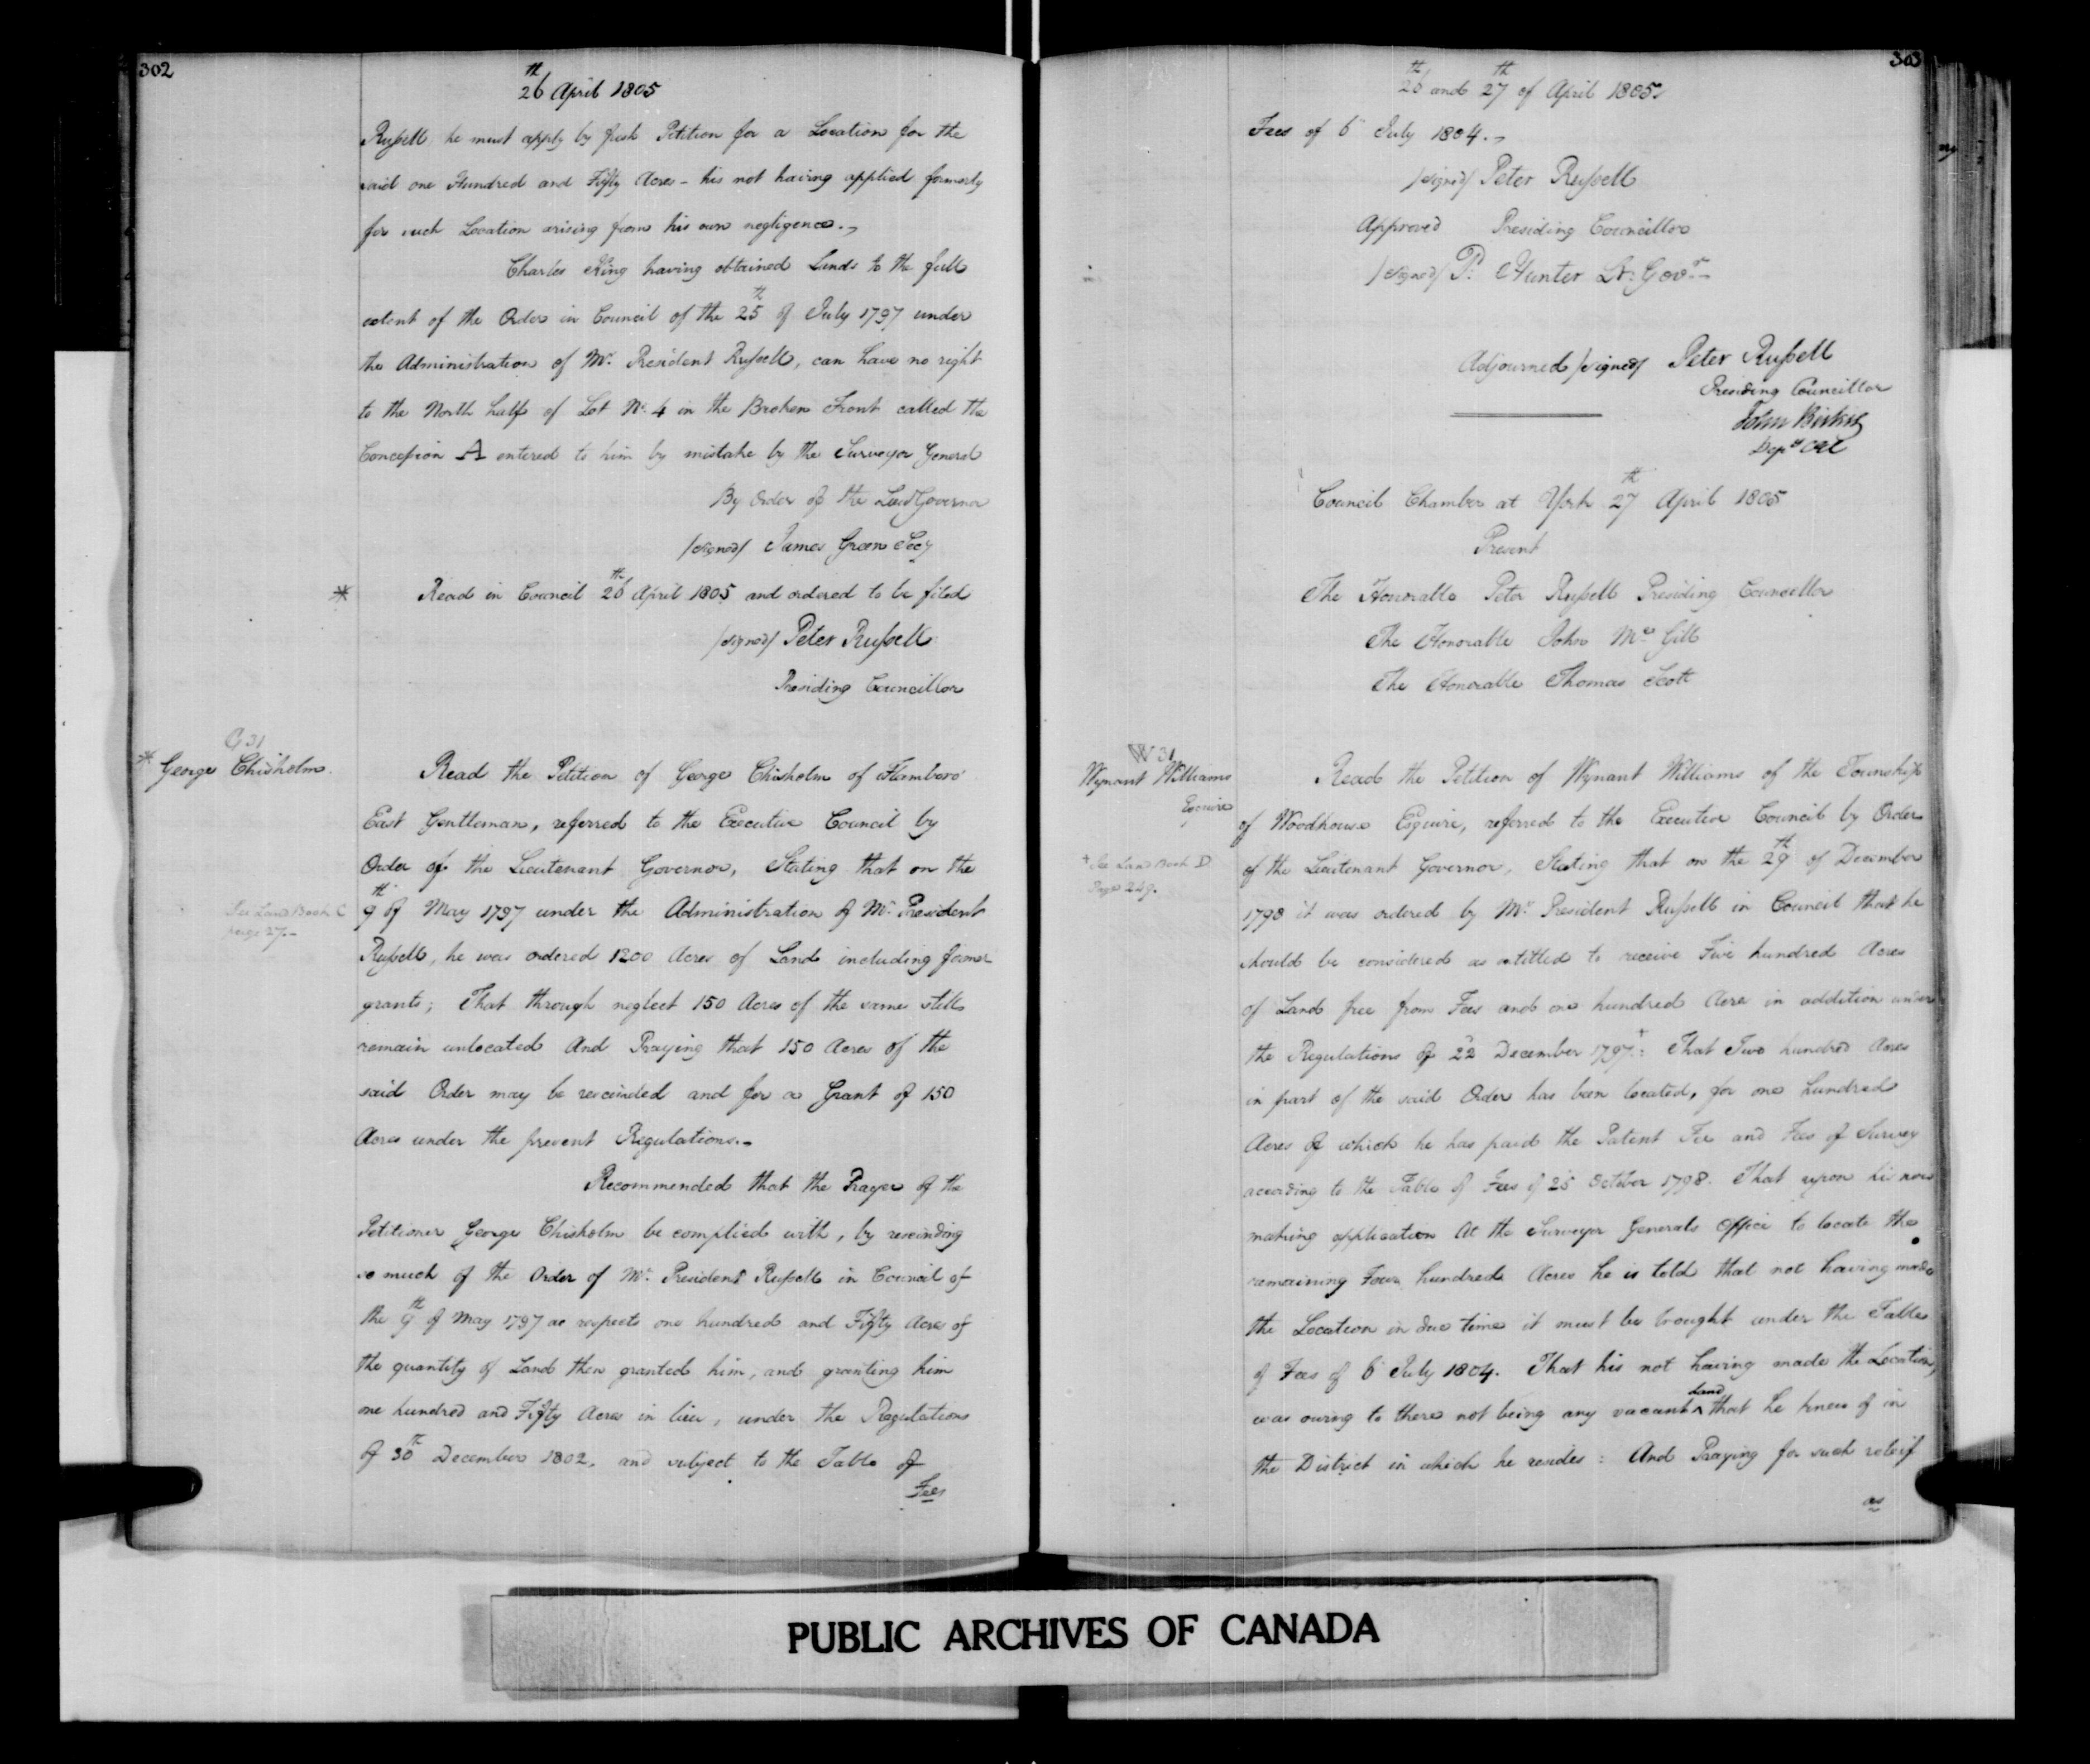 302
26th April 1805
Russell he must apply by fresh Petition for a Location for the
said one Hundred and Fifty Acres - his not having applied formerly
for such Location arising from his own negligence.
Charles King having obtained Lands to the full
extent of the Order in Council of the 25th of July 1797 under
the Administration of Mr. President Russell, can have no right
to the North half of Lot No. 4 in the Broken Front called the
Concession A entered to him by mistake by the Surveyor General
By Order of the Lieut Governor
/signed/ James Green Secy
* Read in Council 26th April 1805 and ordered to be filed
/signed/ Peter Russell
Presiding Councillor
G 31
* George Chisholm.
Read the Petition of George Chisholm of Flamboro'
East Gentleman, referred to the Executive Council by
Order of the Lieutenant Governor, Stating that on the
See Land Book C
page 27.-
9th of May 1797 under the Administration of Mr. President
Russell, he was ordered 1200 Acres of Land including former
grants; That through neglect 150 Acres of the same still
remain unlocated And Praying that 150 Acres of the
said Order may be rescinded and for a Grant of 150
Acres under the present Regulations.-
Recommended that the Prayer of the
Petitioner George Chisholm be complied with, by rescinding
so much of the Order of Mr. President Russell in Council of
the 9th of May 1797 as respects one hundred and Fifty Acres of
the quantity of Land then granted him, and granting him
one hundred and Fifty Acres in lieu, under the Regulations
of 30th December 1802, and subject to the Table of
Fees
303
26th and 27th of April 1805.
Fees of 6 July 1804.
/signed/ Peter Russell
Approved Presiding Councillor
/signed/ P: Hunter Lt: Govr.
Adjourned /signed/ Peter Russell
Presiding Councillor
John Beikie
Depy
Council Chamber at York 27th April 1805
Present
The Honorable Peter Russell Presiding Councillor
The Honorable John McGill
The Honorable Thomas Scott
W 31
Wynant Williams
Esquire
Read the Petition of Wynant Williams of the Township
of Woodhouse Esquire, referred to the Executive Council by Order
+ See Land Book D
Page 249.
of the Lieutenant Governor, Stating that on the 29th of December
1798 it was ordered by Mr. President Russell in Council that he
should be considered as entitled to receive Five hundred Acres
of Land free from Fees and one hundred Acres in addition under
the Regulations of 22 December 1797+: That Two hundred Acres
in part of the said Order has been located, for one hundred
Acres of which he has paid the Patent Fee and Fees of Survey
according to the Table of Fees of 25 October 1798. That upon his now
making application at the Surveyor Generals Office to locate the
remaining Four hundred Acres he is told that not having made
the Location in due time it must be brought under the Table
of Fees of 6 July 1804. That his not having made the Location,
was owing to there not being any vacant ^Land that he knew of in
the District in which he resides: And Praying for such releif
as
PUBLIC ARCHIVES OF CANADA